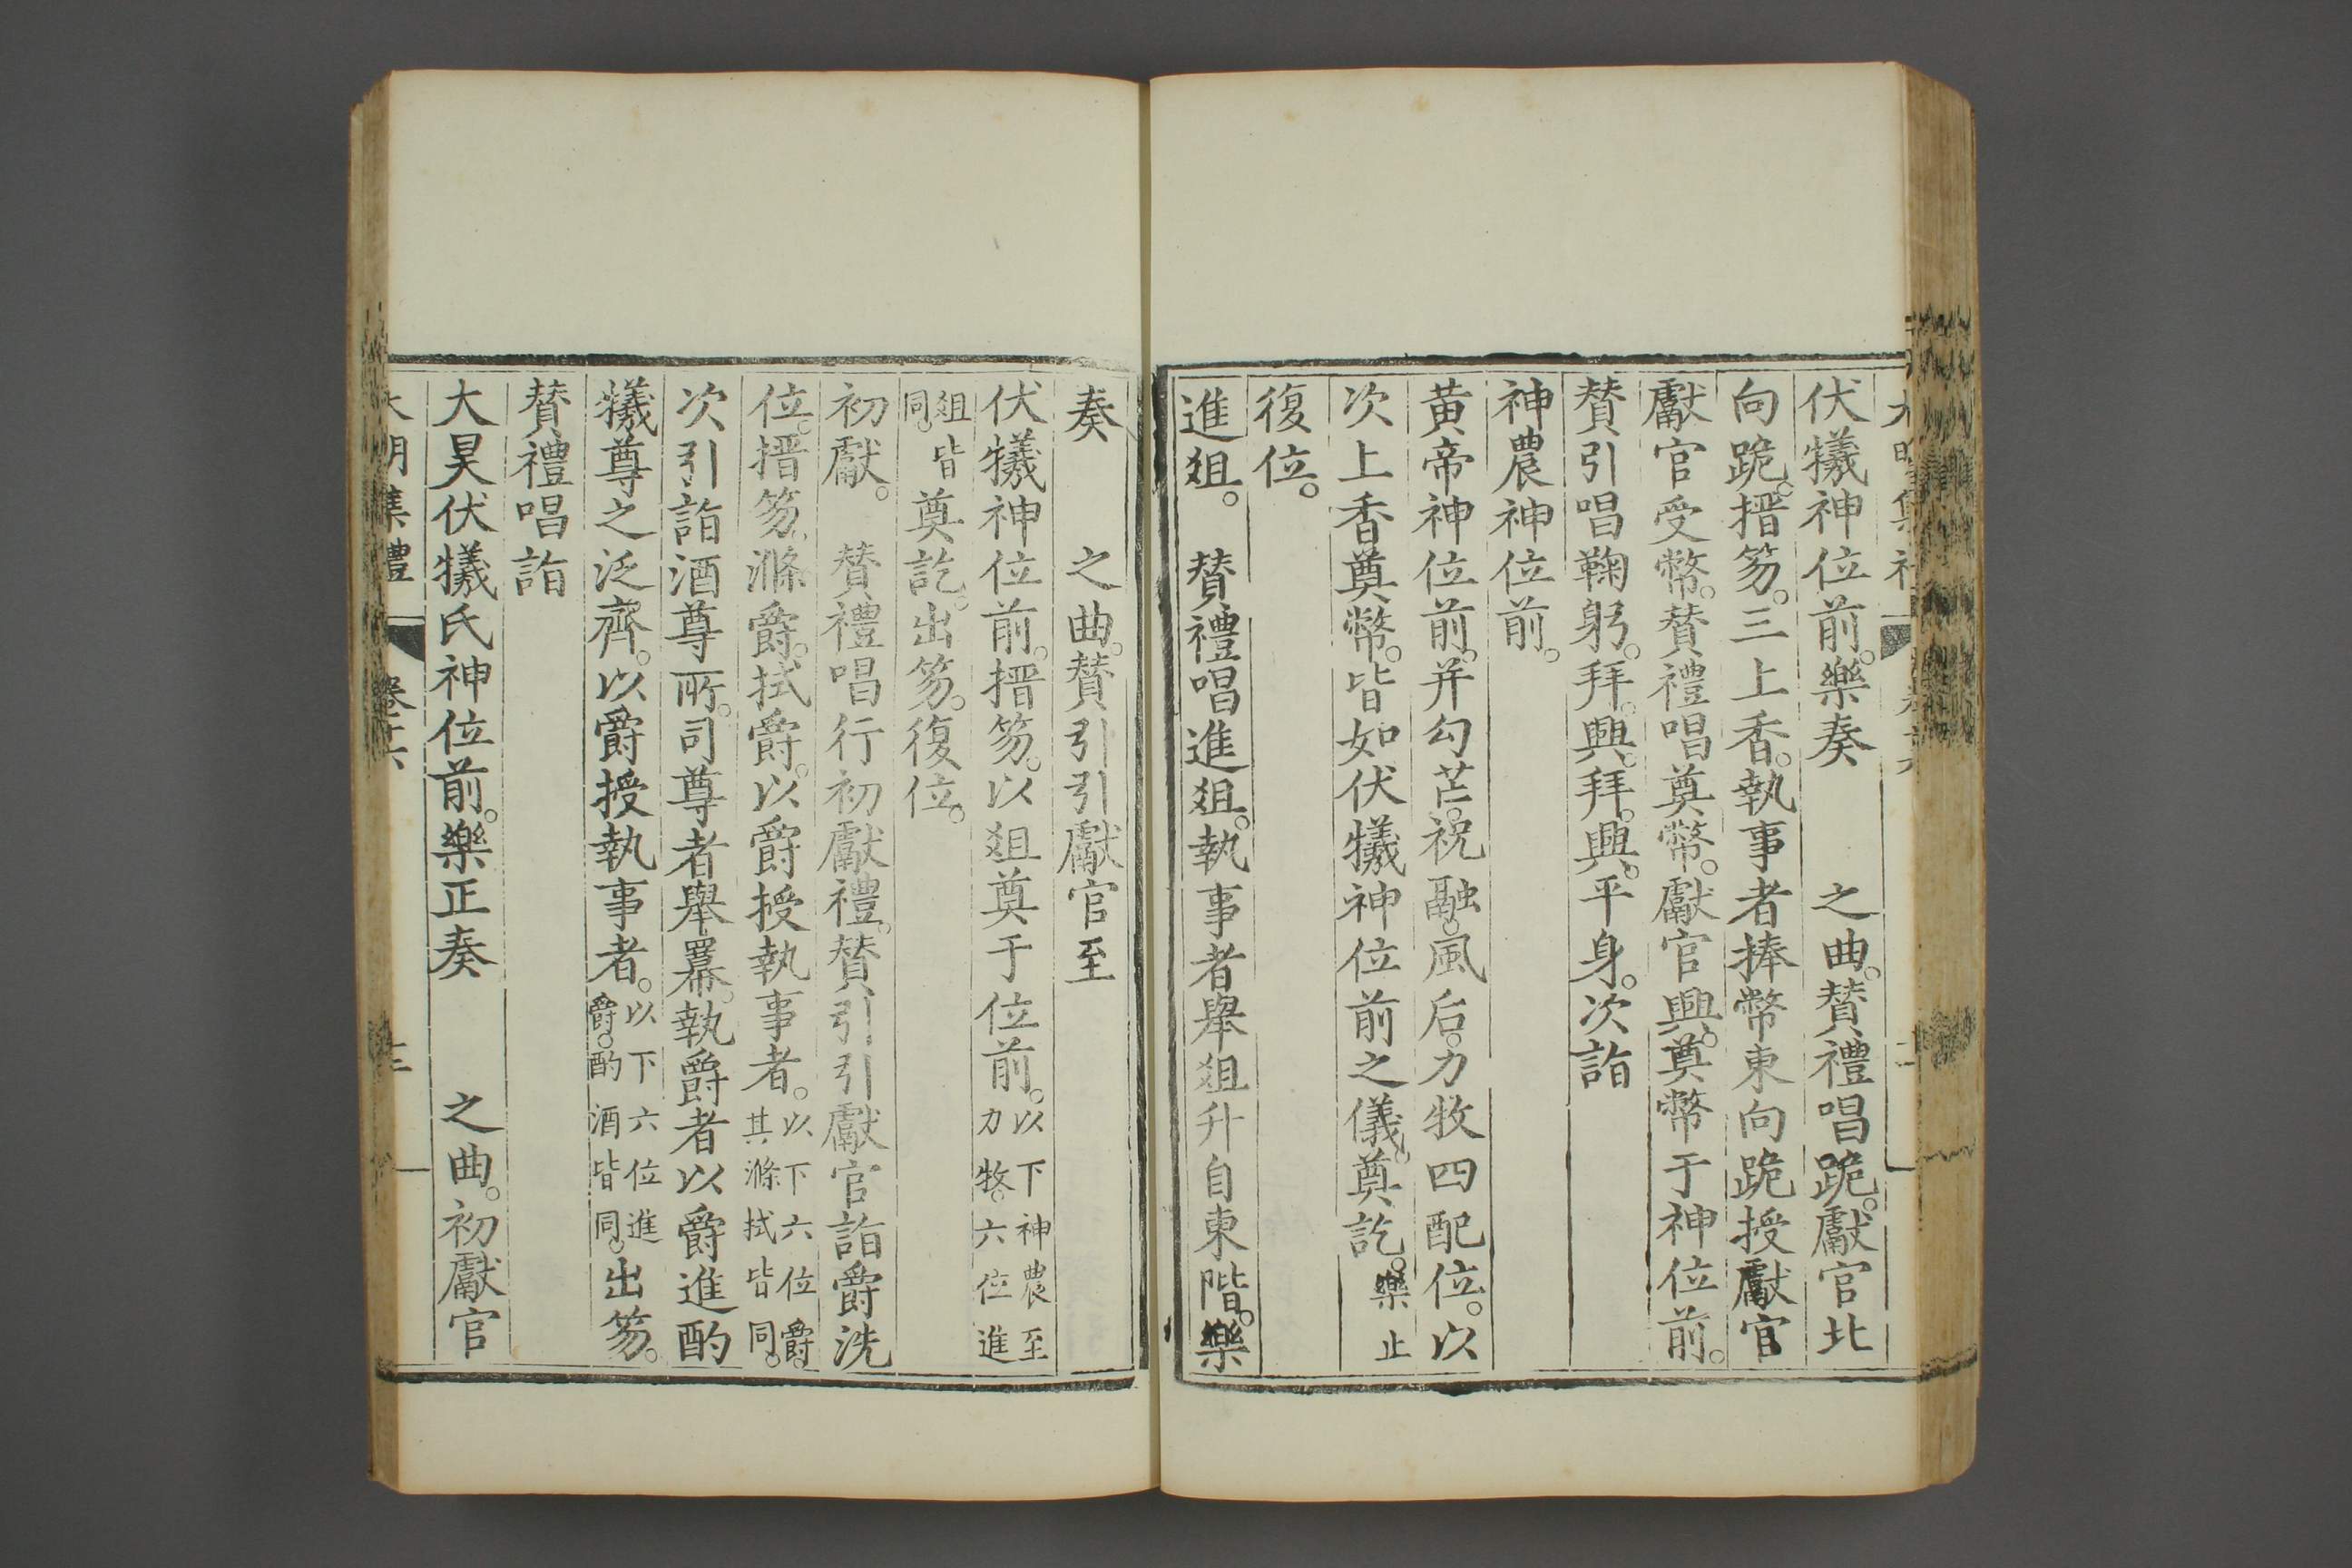 伏犧神位前。樂奏　　之曲。贊禮唱跪。獻官北
向跪。搢笏。三上香。執事者捧幣東向跪授獻官
獻官受幣。贊禮唱奠幣。獻官興。奠幣于神位前。
贊引唱鞠躬。拜。興。拜。興。平身。次詣
神農神位前。
黃帝神位前。并勾芒。祝融。風后。力牧四配位。以
次上香奠幣。皆如伏犧神位前之儀。奠訖。樂止
復位。
進爼。　贊禮唱進爼。執事者舉爼升自東階。樂
奏　　之曲。贊引引獻官至
伏犧神位前。搢笏。以爼奠于位前。以下神農至力牧。六位進
爼皆同。奠訖。出笏。復位。
初獻。　贊禮唱行初獻禮。贊引引獻官詣爵洗
位。搢笏。滌爵。拭爵。以爵授執事者。以下六位爵。其滌拭皆同。
次引詣酒尊所。司尊者舉羃。執爵者以爵進酌
犧尊之泛齊。以爵授執事者。以下六位進爵。酌酒皆同。出笏。
贊禮唱詣
大昊伏犧氏神位前。樂正奏　　之曲。初獻官
大明集禮　卷十六　十二